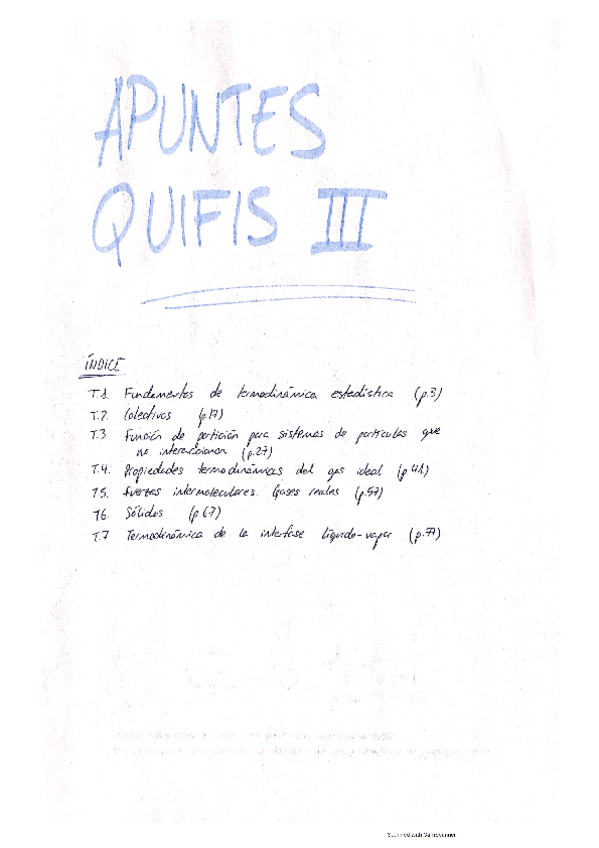 APUNTES
QUIFIS III
ÍNDICE
T.1. Fundamentos de termodinámica estadística (p.3)
T.2. Colectivos (p.17)
T.3 Función de partición para sistemas de partículas que
no interaccionan (p.27)
T.4. Propiedades termodinámicas del gas ideal (p.41)
T5. Fuerzas intermoleculares. Gases reales (p.57)
T6. Sólidos (p.67)
T.7 Termodinámica de la interfase líquido-vapor (p.77)
Scanned with CamScanner